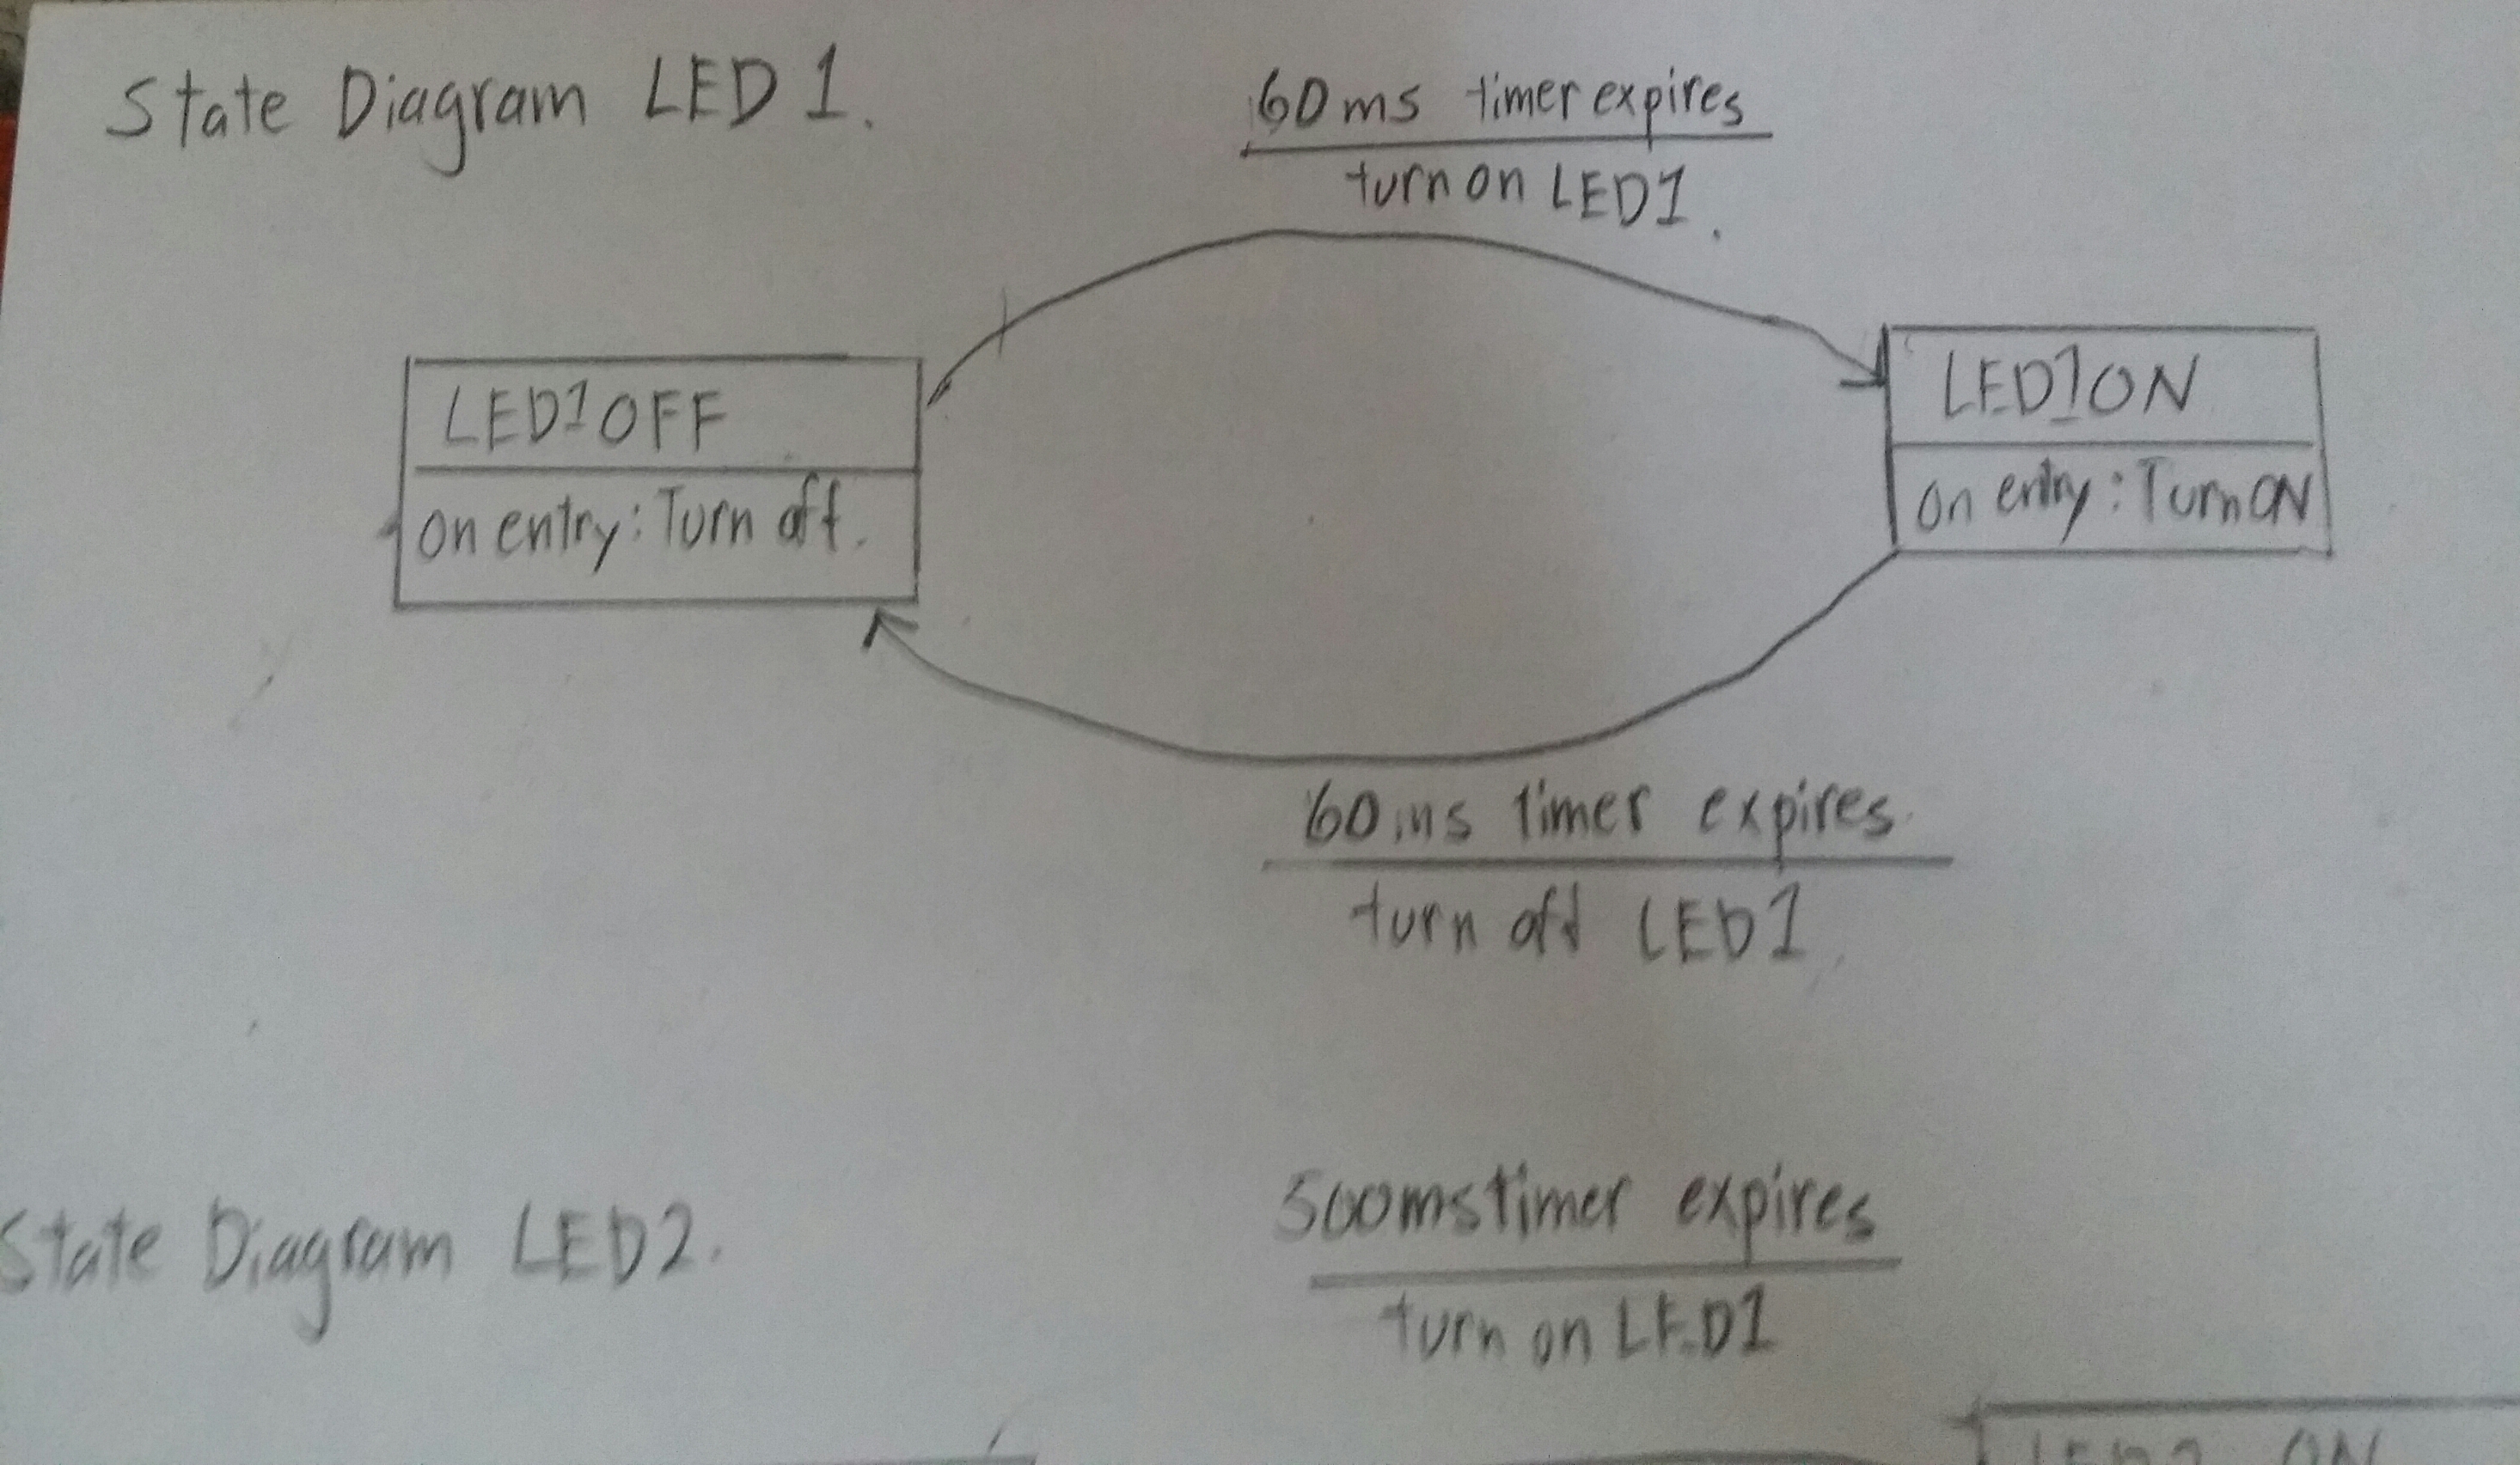 State Diagram LED 1.
60ms timer expires
turn on LED1.
LED1OFF
on entry: Turn off.
LED1ON
on entry: Turn ON
60ms timer expires
turn off LED1
State Diagram LED2.
500ms timer expires
turn on LED1
LED2 ON